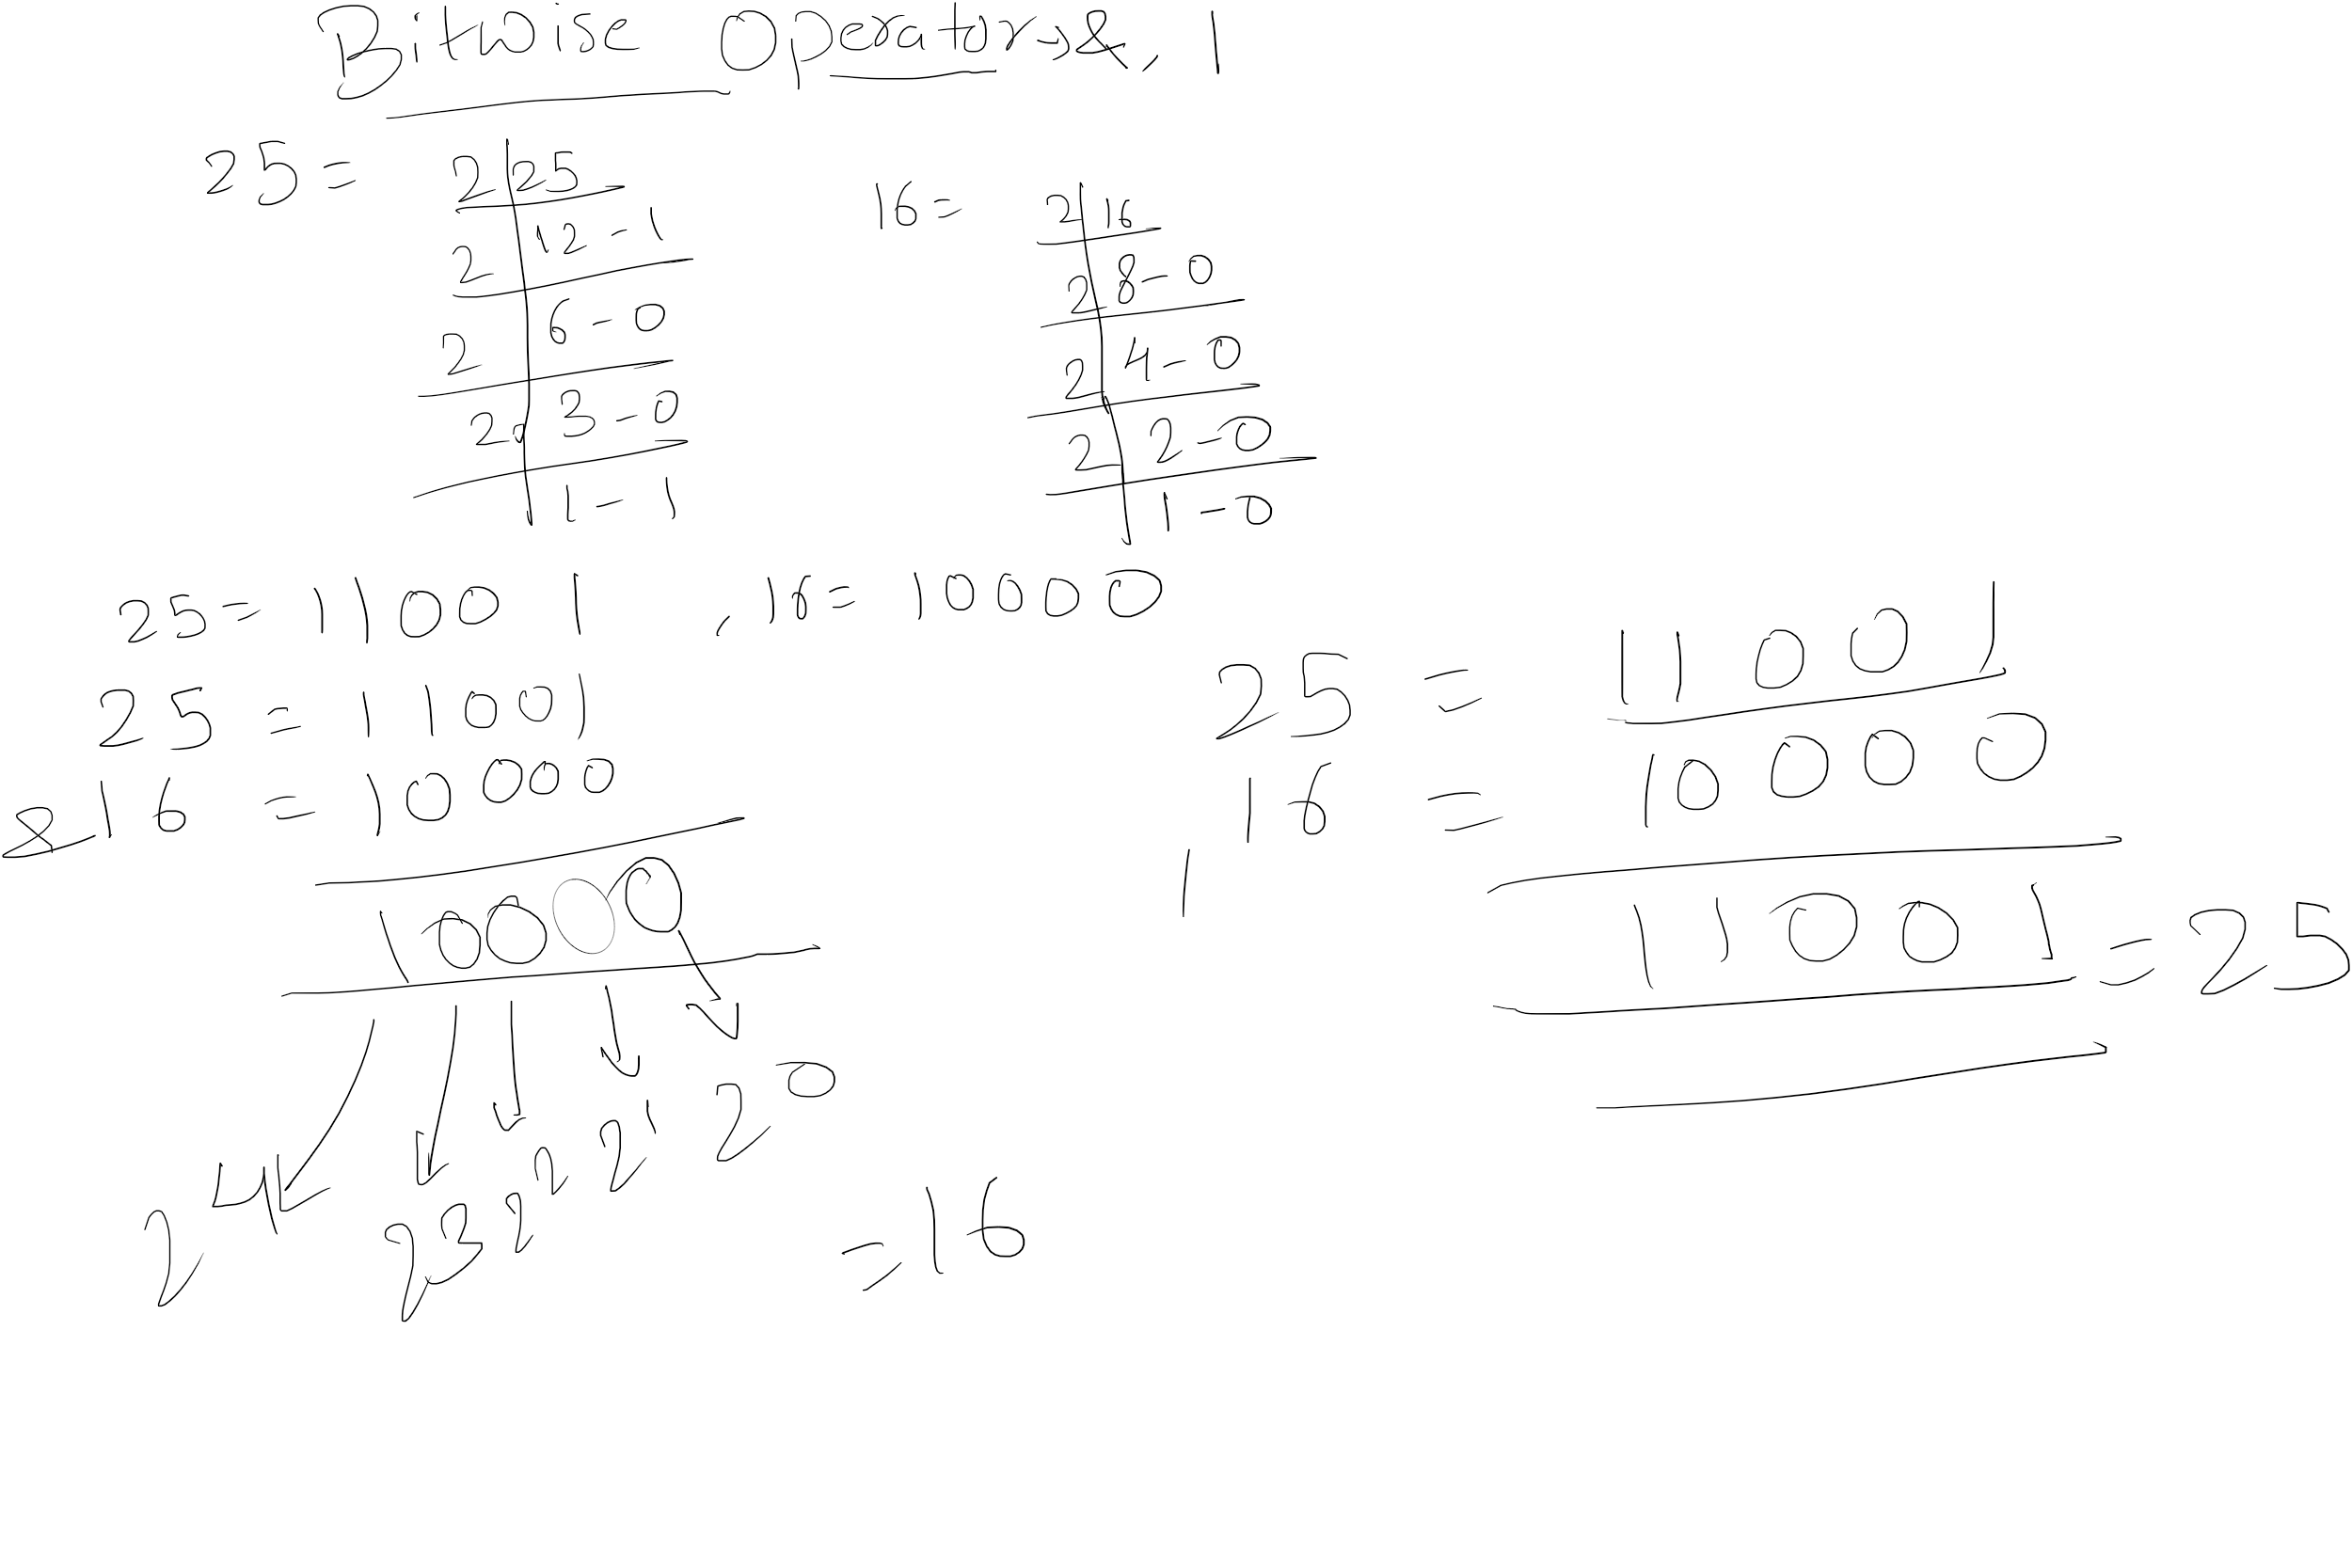 Bitwise Operators &, |
25 =
2 25
2 12 - 1
2 6 - 0
2 3 - 0
1 - 1
16 =
2 16
2 8 - 0
2 4 - 0
2 2 - 0
1 - 0
25 = 11001 , 16 = 10000
25 = 11001
& 16 = 10000
10000
2^4 2^3 2^2 2^1 2^0
= 16
25 = 11001
| 16 = 10000
11001 = 25